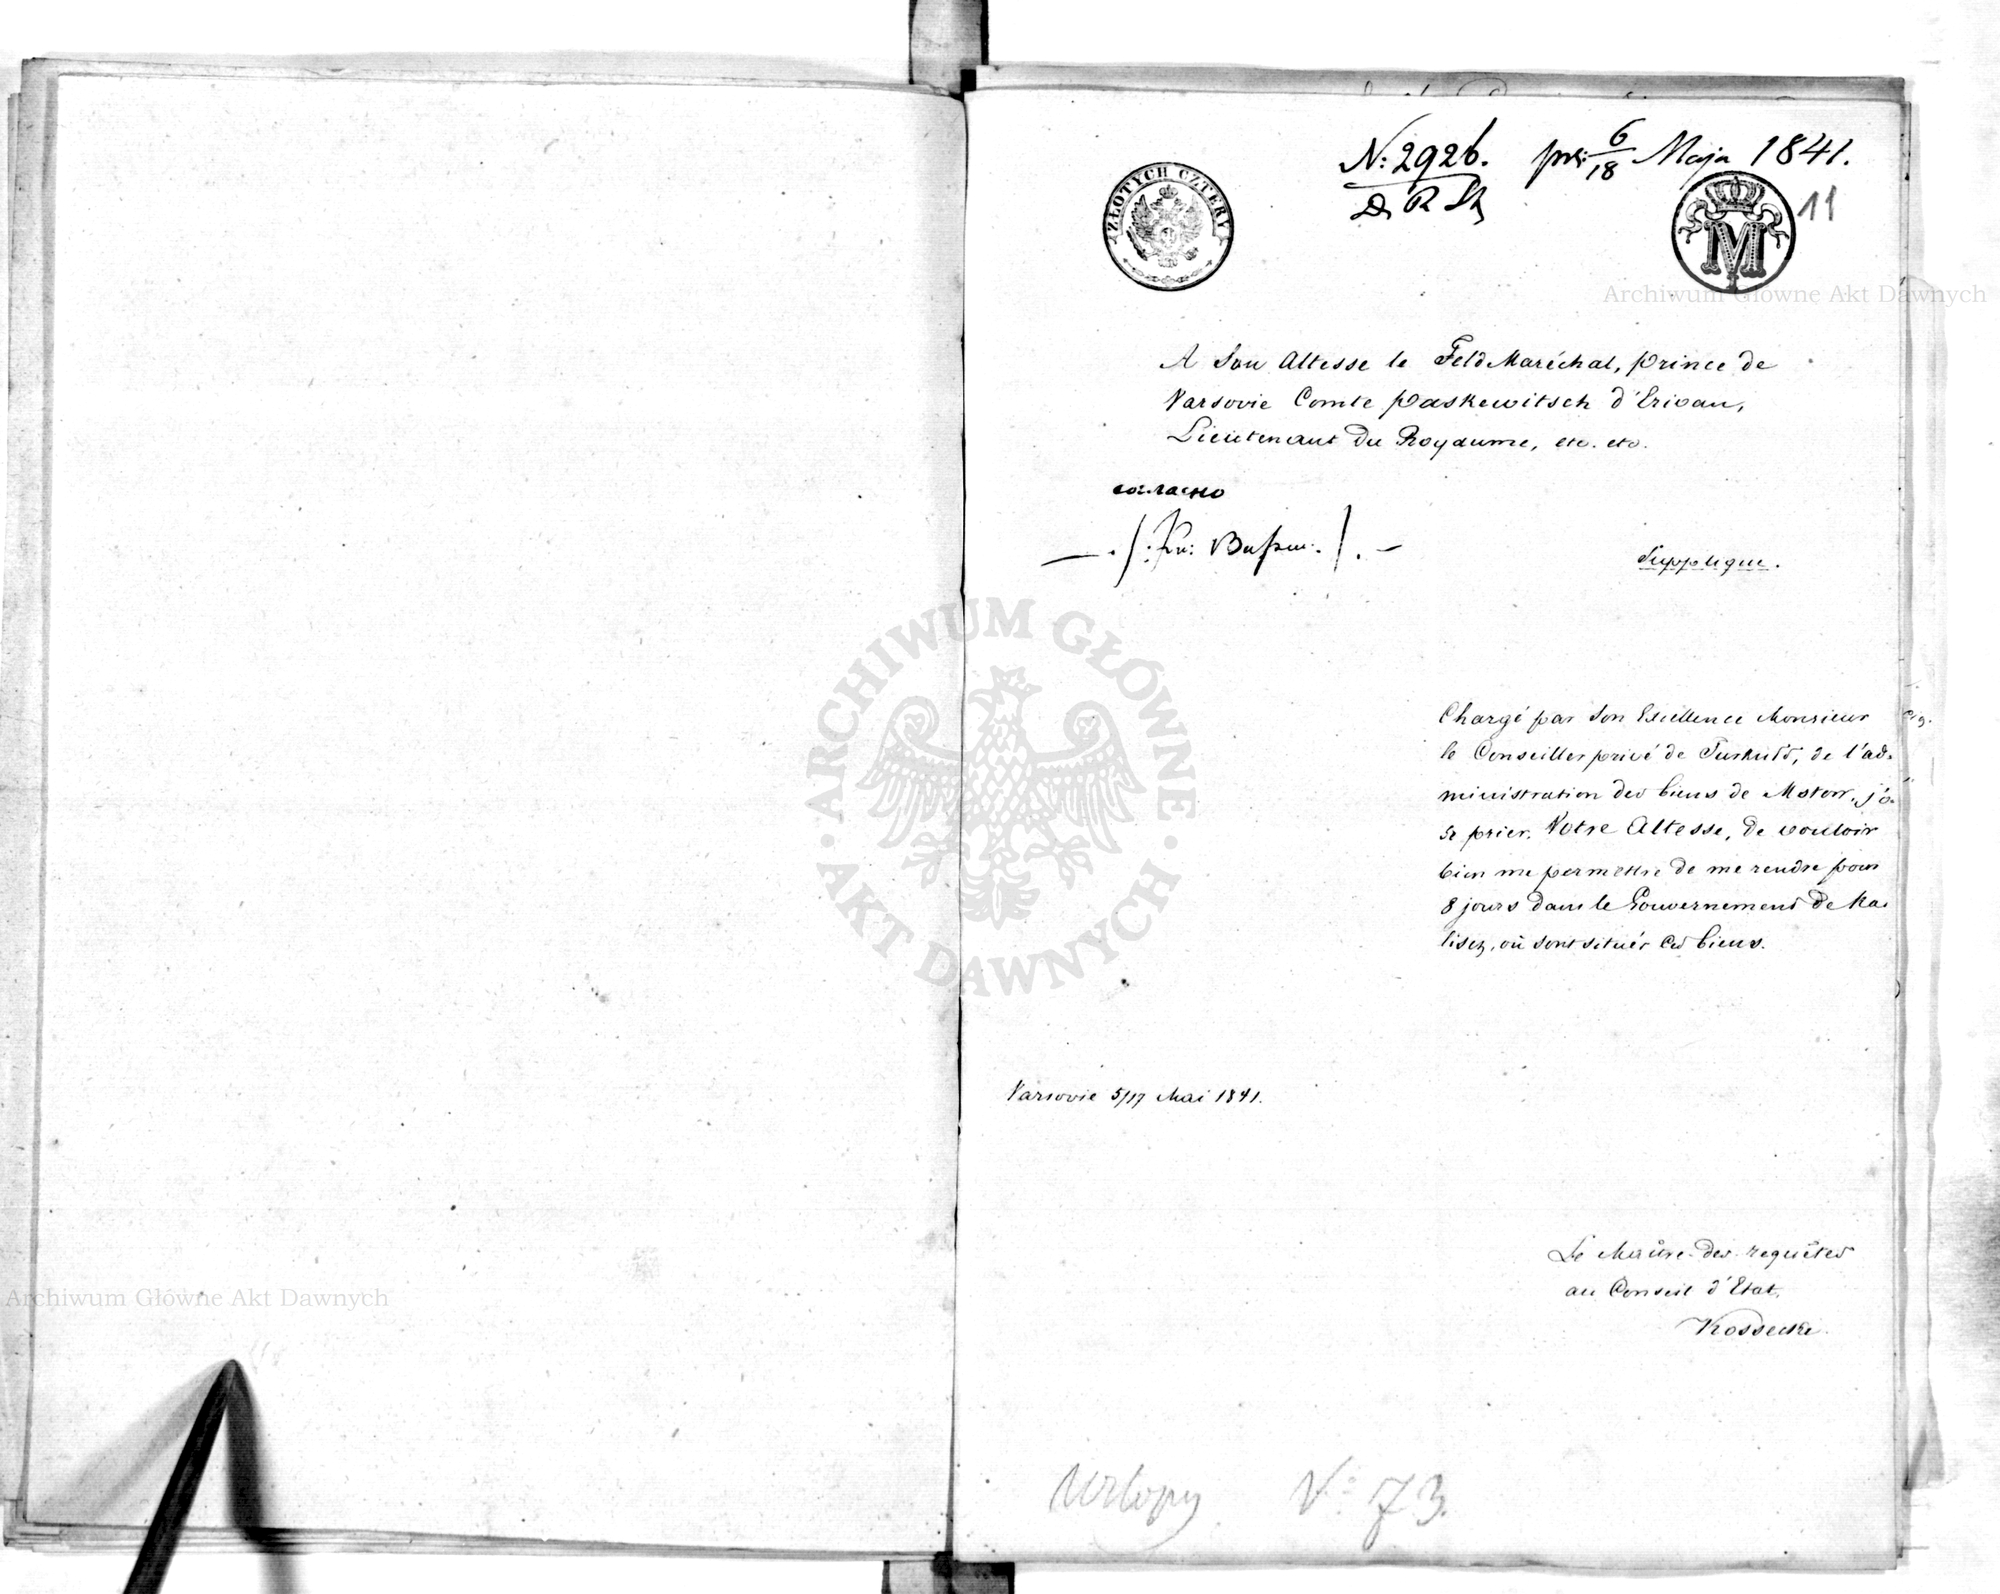 N: 2926. pr: 6/18 Maja 1841.
D R St
11
ZŁOTYCH CZTERY
M
A Son Altesse le Feld Maréchal, Prince de
Varsovie Comte Paskewitsch d'Erivan,
Lieutenant du Royaume, etc. etc.
согласно
Supplique.
Chargé par Son Excellence Monsieur
le Conseiller privé de Turkułł, de l'ad-
ministration des biens de, j'o-
se prier Votre Altesse, de vouloir
bien me permettre de me rendre pour
8 jours dans le Gouvernement de Ka-
lisch, où sont situés ces biens.
Varsovie 5/17 Mai 1841.
Le Maître des requêtes
au Conseil d'Etat,
Kossecki.
Urlopy N: 73.
ARCHIWUM GŁÓWNE AKT DAWNYCH
Archiwum Główne Akt Dawnych
Archiwum Główne Akt Dawnych